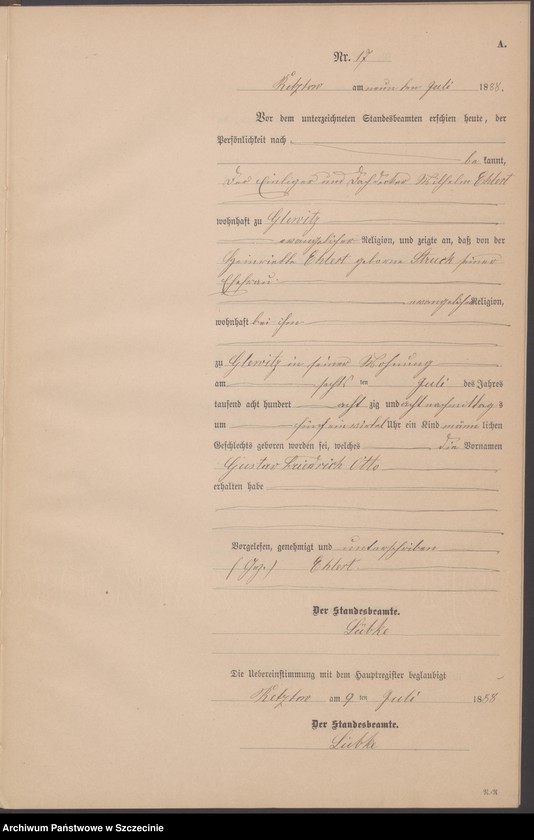 A.
Nr. 17
Retzlow am neunten Juli 1888.
Vor dem unterzeichneten Standesbeamten erschien heute, der
Persönlichkeit nach
be kannt,
der Einlieger und Dachdecker Wilhelm Ehlert
wohnhaft zu Glewitz
evangelischer Religion, und zeigte an, daß von der
Henriette Ehlert geborne Struck seiner
Ehefrau
evangelischer Religion,
wohnhaft bei ihm
zu Glewitz in seiner Wohnung
am sechs ten Juli des Jahres
tausend acht hundert acht zig und acht nachmittags
um fünf einviertel Uhr ein Kind männ lichen
Geschlechts geboren worden sei, welches die Vornamen
Gustav Friedrich Otto
erhalten habe
Vorgelesen, genehmigt und unterschrieben
(Gez.) Ehlert
Der Standesbeamte.
Lübke
Die Uebereinstimmung mit dem Hauptregister beglaubigt
Retzlow am 9 ten Juli 1888
Der Standesbeamte.
Lübke
Archiwum Państwowe w Szczecinie